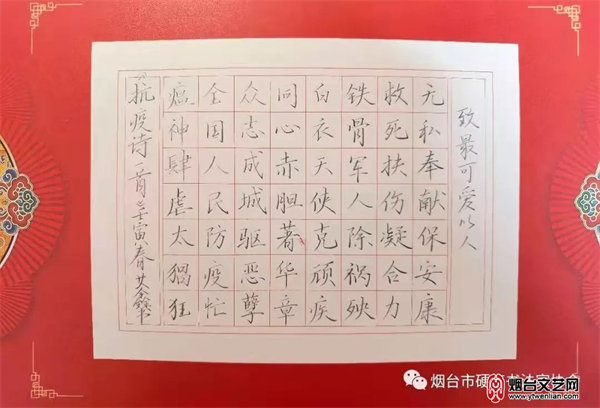 抗疫诗一首 壬寅春
瘟神肆虐太猖狂
全国人民防疫忙
众志成城驱恶孽
同心赤胆著华章
白衣天使克顽疾
铁骨军人除祸殃
救死扶伤凝合力
无私奉献保安康
致最可爱的人
烟台市硬笔书法家协会
烟台文艺网
www.ytwenlian.com